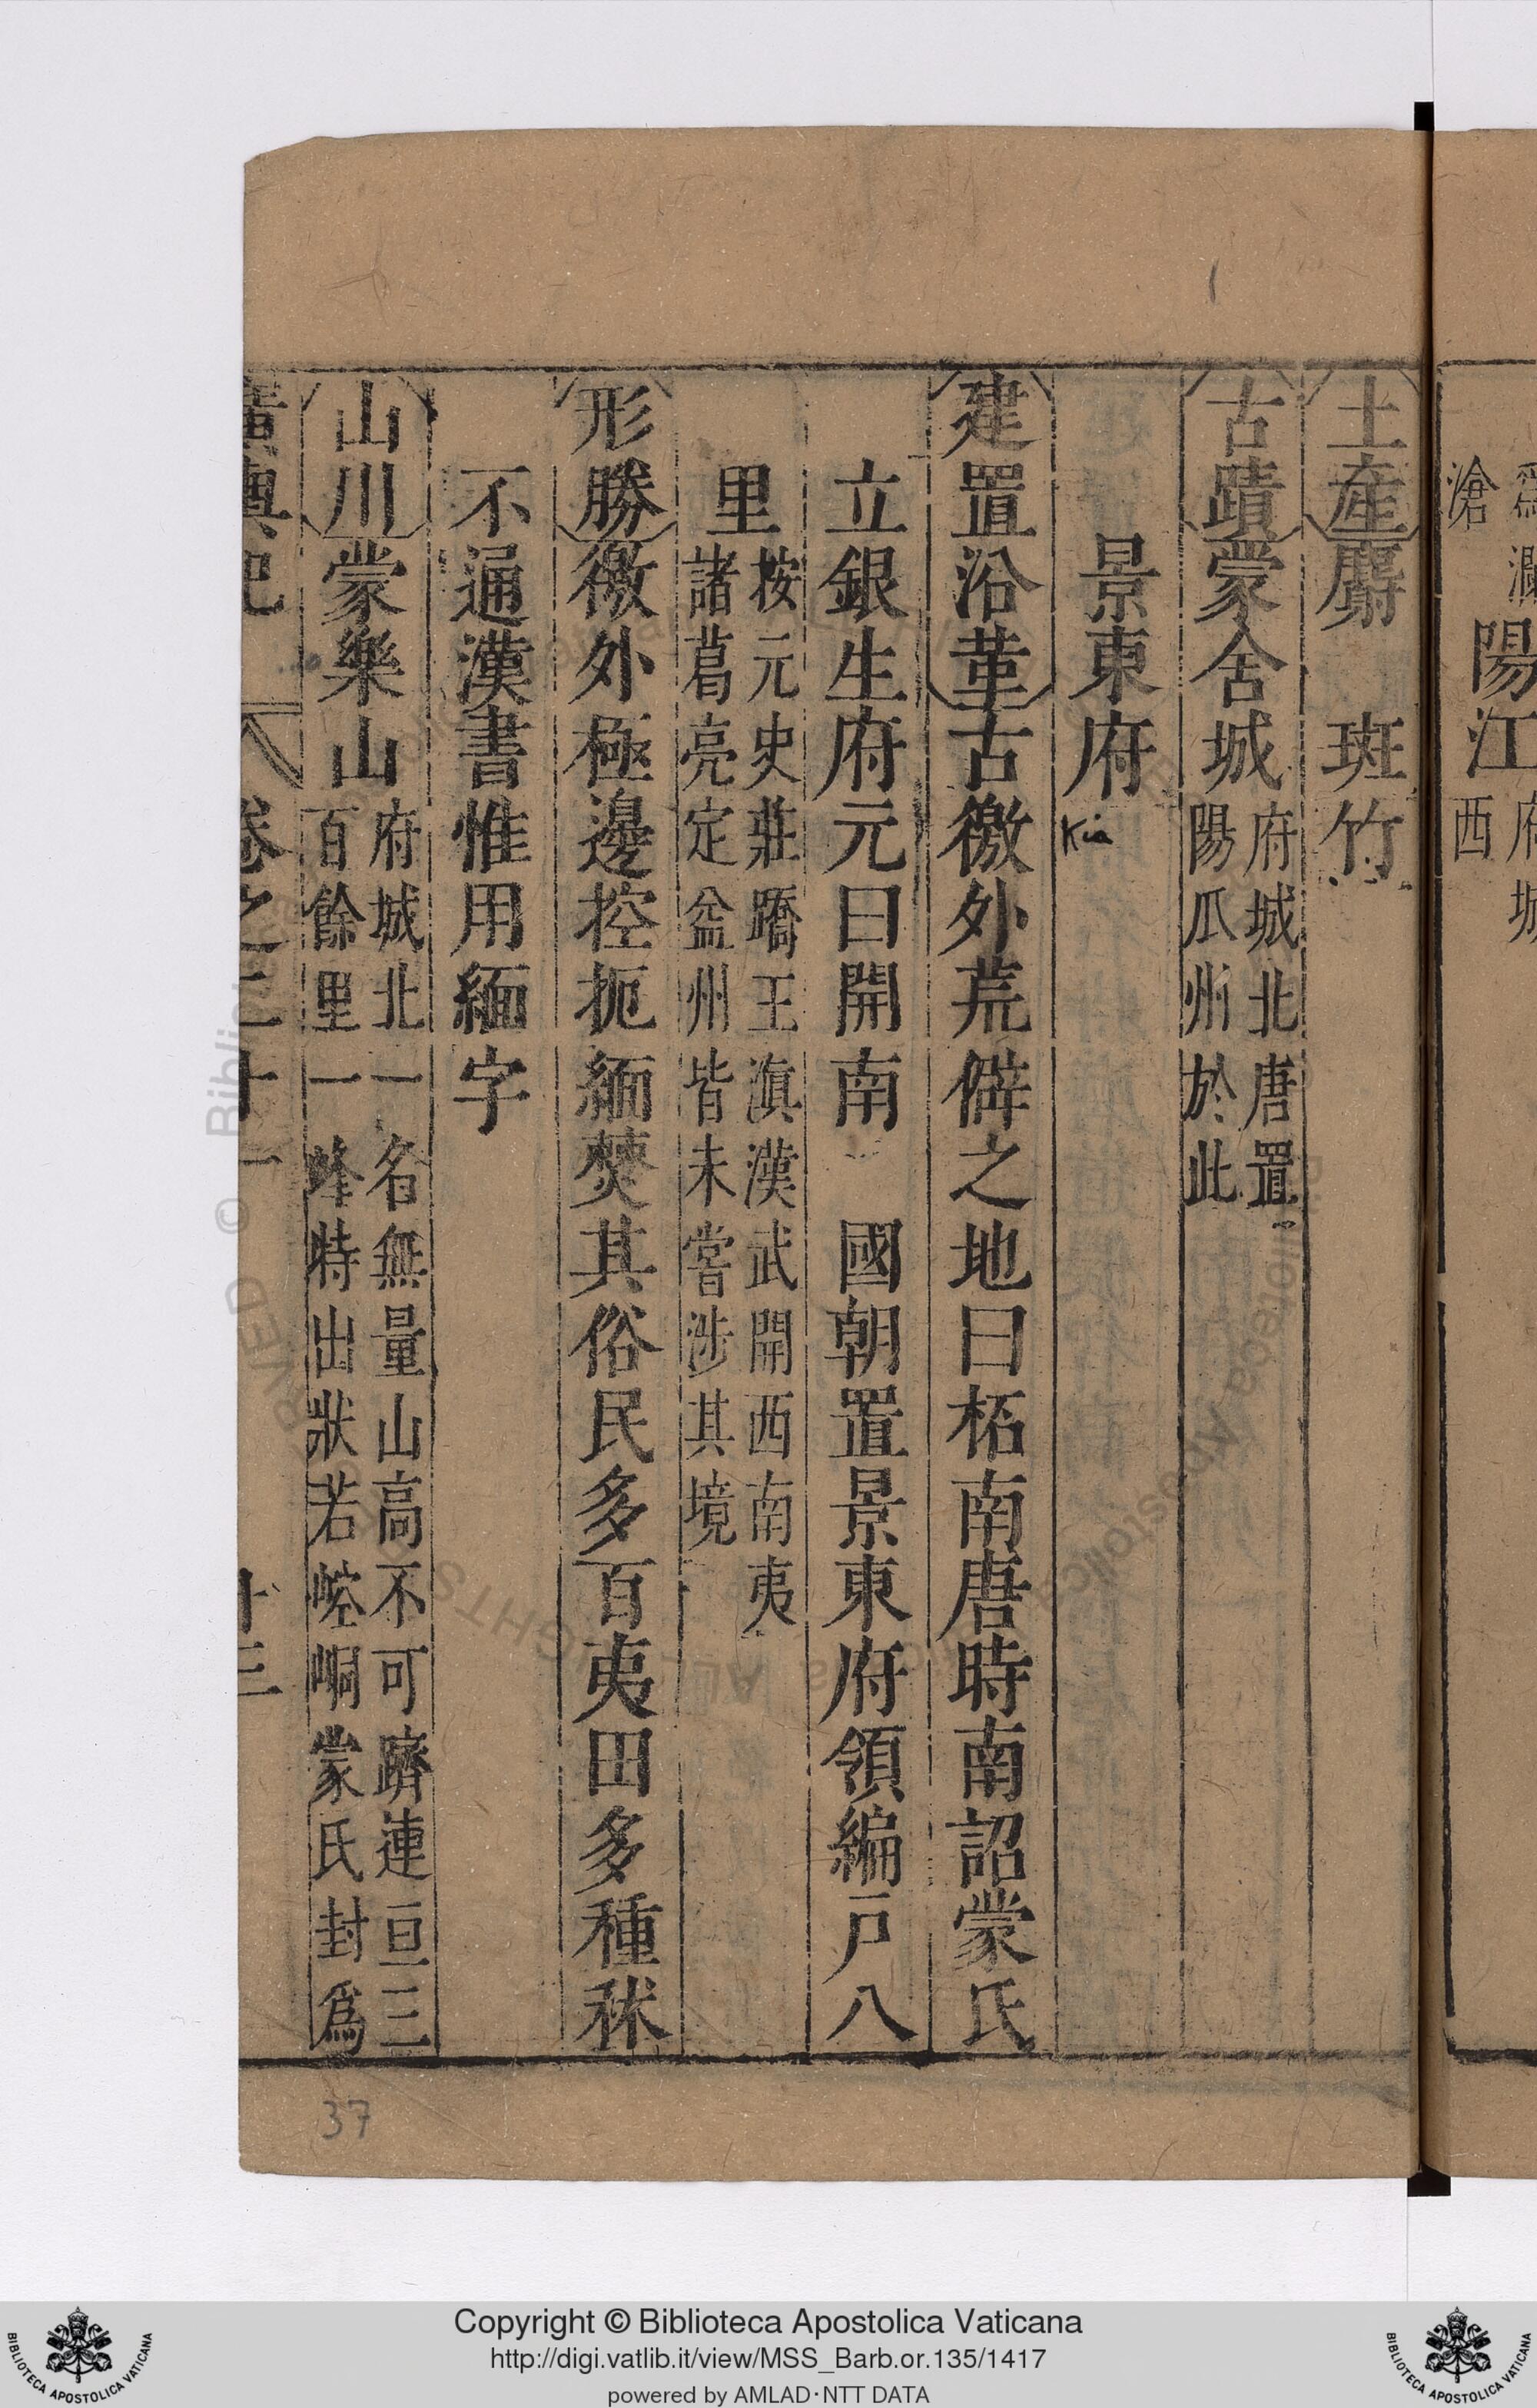 陽江府城
滄 西
土産麝 斑竹
古蹟蒙舍城府城北唐置
陽瓜州於此
景東府
Kia
建置沿革古徼外荒僻之地曰柘南唐時南詔蒙氏
立銀生府元曰開南 國朝置景東府領編戸八
里按元史莊蹻王滇漢武開西南夷
諸葛亮定益州皆未嘗涉其境
形勝徼外極邊控扼緬僰其俗民多百夷田多種秫
不通漢書惟用緬字
山川蒙樂山府城北一名無量山高不可躋連亘三
百餘里一峰特出狀若崆峒蒙氏封爲
廣輿記 卷之二十一 十三
37
Copyright © Biblioteca Apostolica Vaticana
http://digi.vatlib.it/view/MSS_Barb.or.135/1417
powered by AMLAD·NTT DATA
BIBLIOTECA APOSTOLICA VATICANA
BIBLIOTECA APOSTOLICA VATICANA